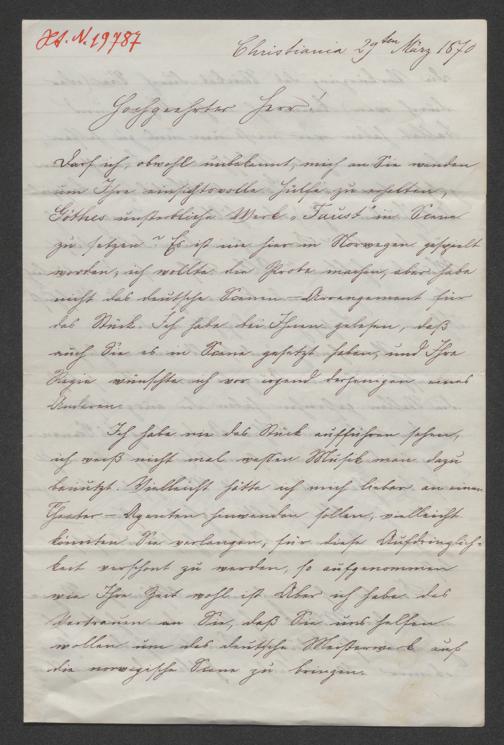 H.I.N. 19787
Christiania 29ten März 1870
Hochgeehrter Herr!
Darf ich, obwohl unbekannt, mich an Sie wenden
um Ihre einsichtsvolle Hülfe zu erhalten,
Göthes unsterbliche Werk „Faust" in Scene
zu setzen? Es ist nie hier in Norwegen gespielt
worden, ich wollte die Probe machen, aber habe
nicht das deutsche Scenen-Arrangement für
das Stück. Ich habe bei Ihnen gelesen, daß
auch Sie es in Scene gesetzt haben, und Ihre
Regie wünschte ich vor irgend derjenigen eines
Anderen.
Ich habe nie das Stück aufführen sehen,
ich weiß nicht mal wessen Musik man dazu
benützt. Vielleicht hätte ich mich lieber an einen
Theater-Agenten hinwenden sollen, vielleicht
könnten Sie verlangen, für diese Aufdringlich-
keit verschont zu werden, so aufgenommen
wie Ihre Zeit wohl ist. Aber ich habe das
Vertrauen an Sie, daß Sie uns helfen
wollen um das deutsche Meisterwerk auf
die norwegische Scene zu bringen.